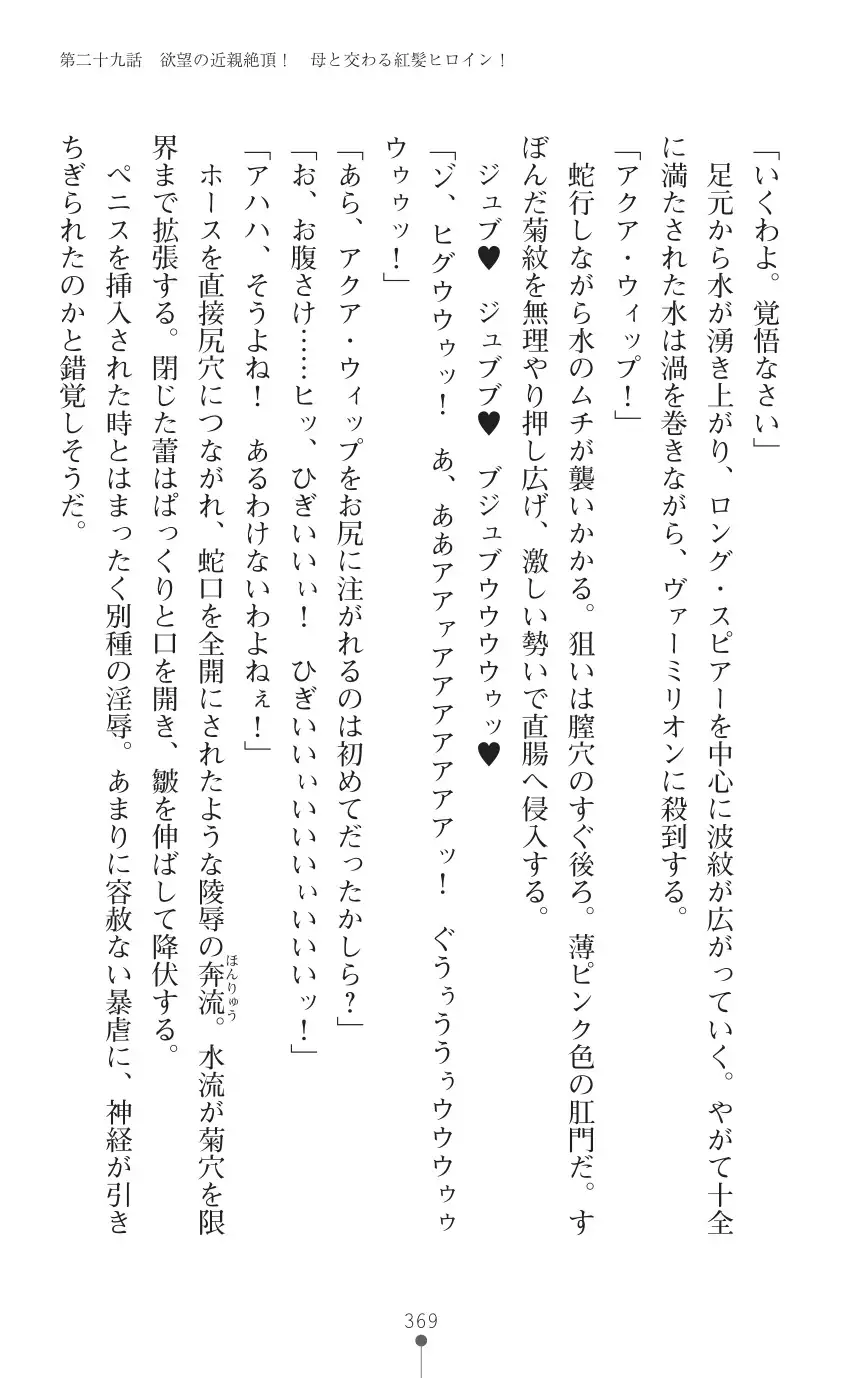 第二十九話　欲望の近親絶頂！　母と交わる紅髪ヒロイン！
「いくわよ。覚悟なさい」
　足元から水が湧き上がり、ロング・スピアーを中心に波紋が広がっていく。やがて十全
に満たされた水は渦を巻きながら、ヴァーミリオンに殺到する。
「アクア・ウィップ！」
　蛇行しながら水のムチが襲いかかる。狙いは膣穴のすぐ後ろ。薄ピンク色の肛門だ。す
ぼんだ菊紋を無理やり押し広げ、激しい勢いで直腸へ侵入する。
　ジュブ♥　ジュブブ♥　ブジュブウウウウゥッ♥
「ゾ、ヒグウウゥッ！　あ、ああアアァアアアアアアアッ！　ぐうぅううぅウウウゥゥ
ウゥゥッ！」
「あら、アクア・ウィップをお尻に注がれるのは初めてだったかしら？」
「お、お腹さけ……ヒッ、ひぎいいぃ！　ひぎいいぃいいいぃいいいッ！」
「アハハ、そうよね！　あるわけないわよねぇ！」
　ホースを直接尻穴につながれ、蛇口を全開にされたような陵辱の奔流ほんりゅう。水流が菊穴を限
界まで拡張する。閉じた蕾はぱっくりと口を開き、皺を伸ばして降伏する。
　ペニスを挿入された時とはまったく別種の淫辱。あまりに容赦ない暴虐に、神経が引き
ちぎられたのかと錯覚しそうだ。
369